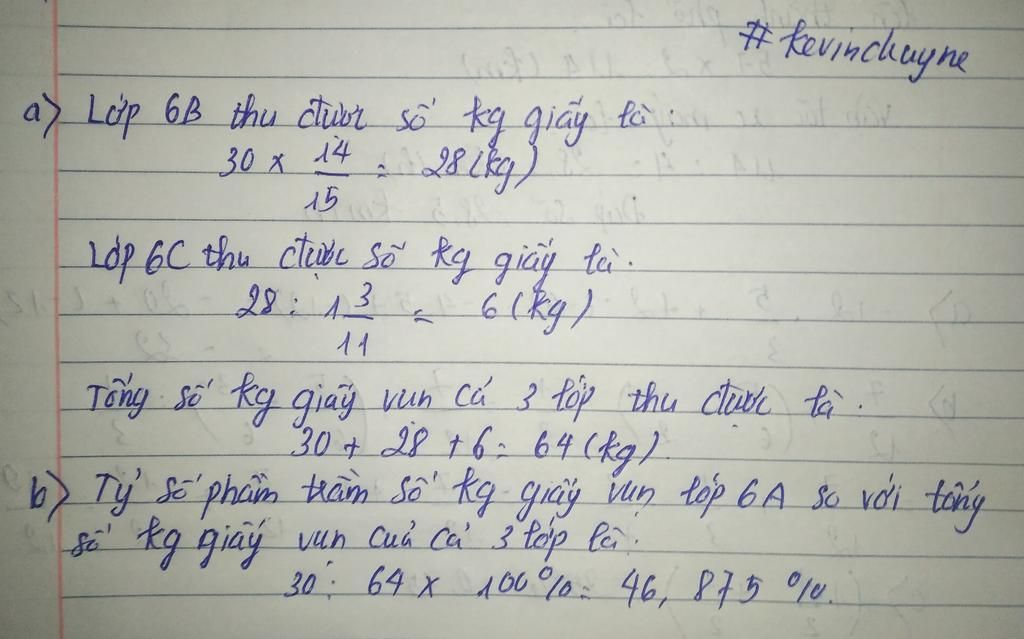 #kevinchuyne
a) Lớp 6B thu được số kg giấy là:
30 x 14/15 = 28 (kg)
Lớp 6C thu được số kg giấy là:
28 : 1 3/11 = 6 (kg)
Tổng số kg giấy vụn cả 3 lớp thu được là:
30 + 28 + 6 = 64 (kg)
b) Tỷ số phần trăm số kg giấy vụn lớp 6A so với tổng
số kg giấy vụn của cả 3 lớp là:
30 : 64 x 100% = 46,875%.